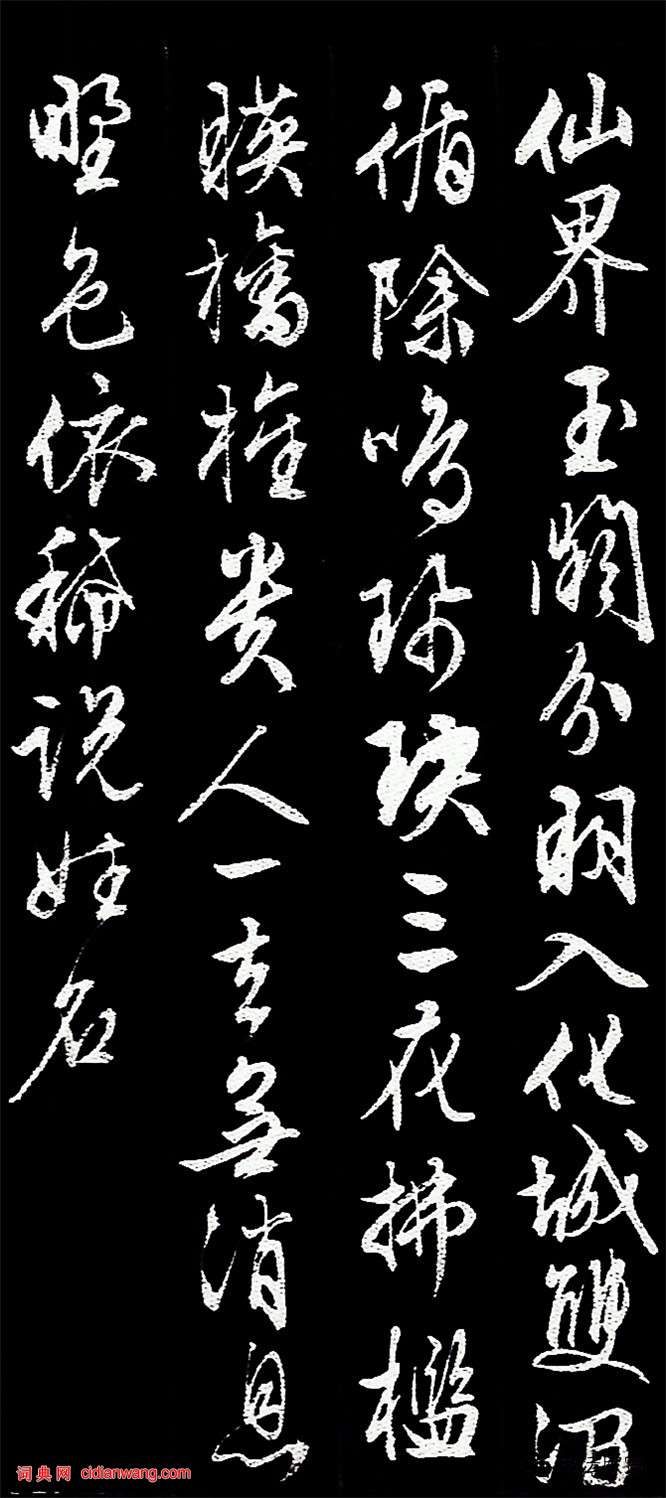 仙界玉關分明入化城雙沼
循除鳴珮玦三花拂檻
暎旛旌貴人一去無消息
野色依稀說姓名
词典网 cidianwang.com